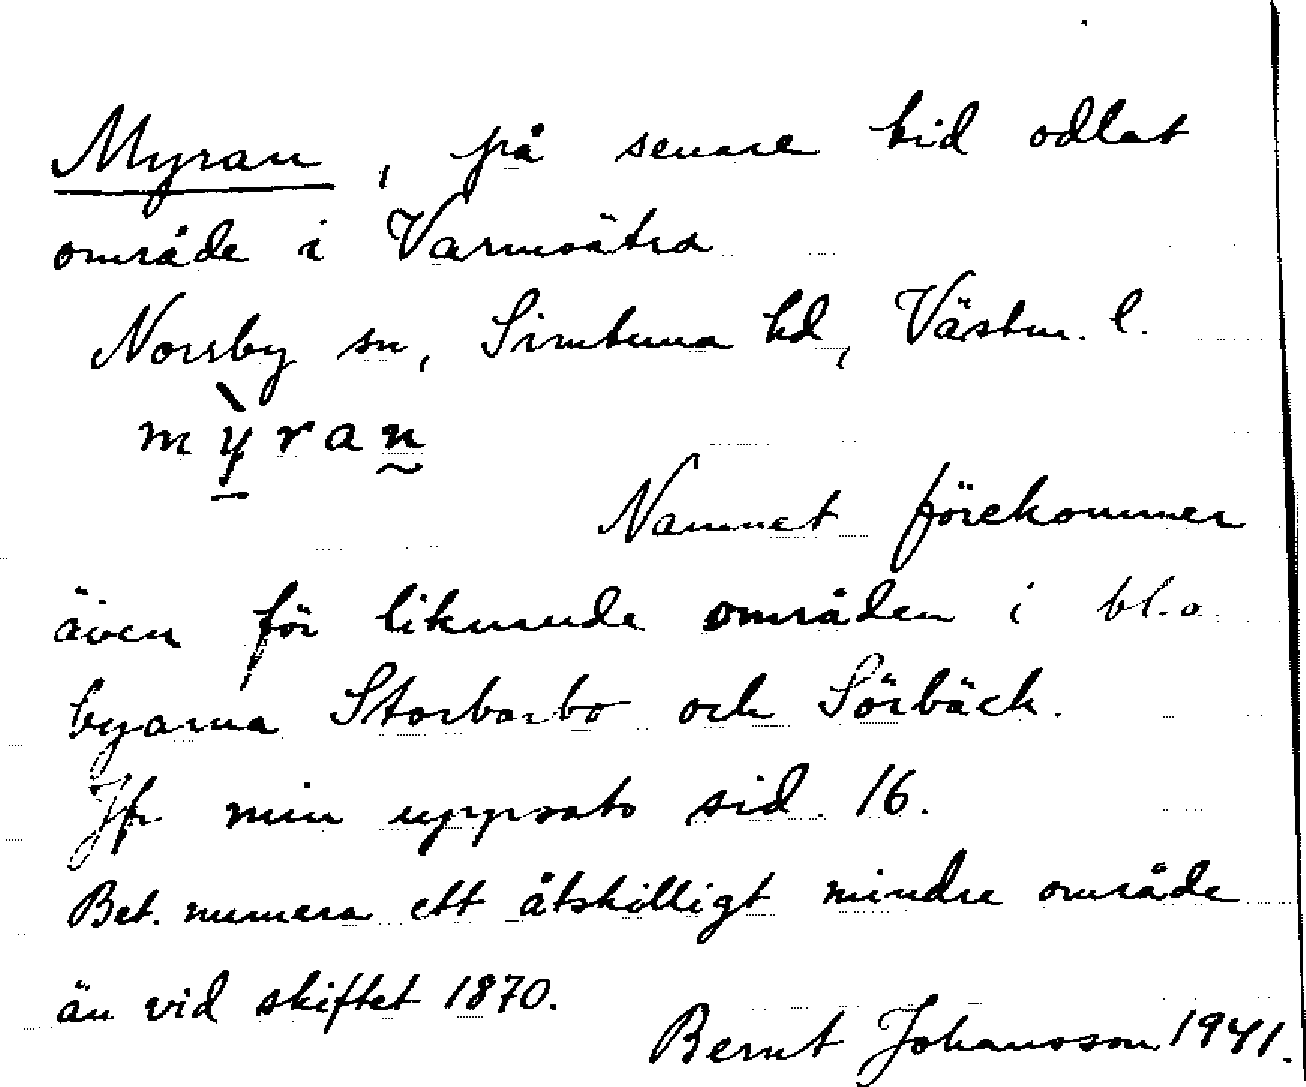 Myran, på senare tid odlat
område i Varmsätra
Norrby sn, Simtuna hd, Västm. l.
mỳran
Namnet förekommer
även för liknande områden i bl.a.
byarna Storbarbo och Sörbäck.
Jfr min uppsats sid. 16.
Bet. numera ett åtskilligt mindre område
än vid skiftet 1870.
Bernt Johansson 1941.